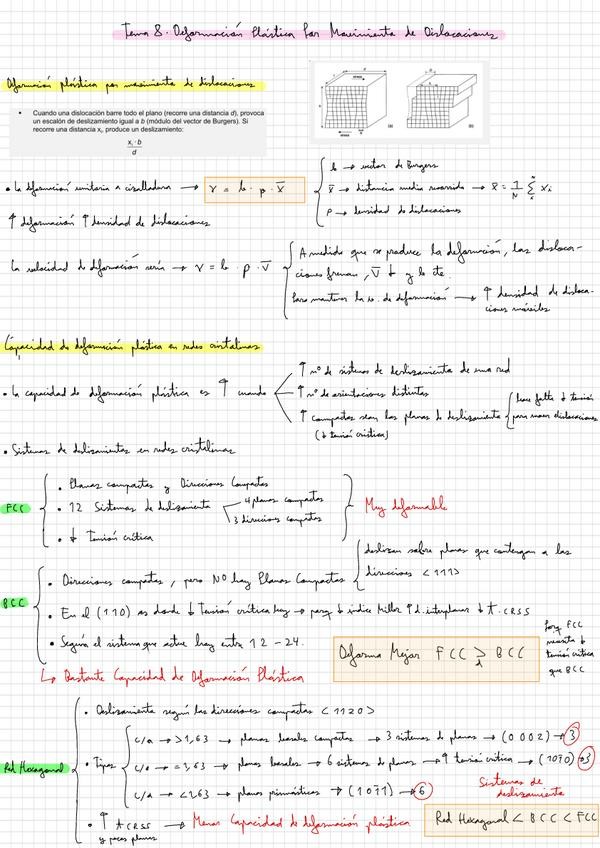 Tema 8. Deformación Plástica Por Movimiento de Dislocaciones
Deformación plástica por movimiento de dislocaciones
• Cuando una dislocación barre todo el plano (recorre una distancia d), provoca
un escalón de deslizamiento igual a b (módulo del vector de Burgers). Si
recorre una distancia xi, produce un deslizamiento:
xi · b
d
(a)
(b)
• La deformación unitaria a cizalladura → γ = b · ρ · x̄
b → vector de Burgers
x̄ → distancia media recorrida → x̄ = 1/N Σ xi
ρ → densidad de dislocaciones
↑ deformación ↑ densidad de dislocaciones
La velocidad de deformación sería → γ = b · ρ · v̄
A medida que se produce la deformación, las disloca-
ciones frenan, v̄ ↓ y b cte.
Para mantener la v. de deformación → ↑ densidad de disloca-
ciones móviles
Capacidad de deformación plástica en redes cristalinas
• La capacidad de deformación plástica es ↑ cuando
↑ nº de sistemas de deslizamiento de una red
↑ nº de orientaciones distintas
↑ compactos sean los planos de deslizamiento
(↓ tensión crítica)
hace falta ↓ tensión
para mover dislocaciones
• Sistemas de deslizamientos en redes cristalinas
FCC
• Planos compactos y Direcciones Compactas
• 12 Sistemas de deslizamiento
4 planos compactos
3 direcciones compactas
• ↓ Tensión crítica
Muy deformable
BCC
• Direcciones compactas, pero NO hay Planos Compactos
deslizan sobre planos que contengan a las
direcciones <111>
• En el (110) es donde ↓ Tensión crítica hay → porq ↓ índice Miller ↑ d. interplanar ↓ τ CRSS
• Según el sistema que actue hay entre 12 - 24.
↳ Bastante Capacidad de Deformación Plástica
Deforma Mejor FCC > BCC
Porq FCC
necesita ↓
tensión crítica
que BCC
Red Hexagonal
• Deslizamiento según las direcciones compactas <1120>
• Tipos
c/a → >1,63 → planos basales compactos → 3 sistemas de planos → (0002) → 3
c/a → =1,63 → planos basales → 6 sistemas de planos → ↑ tensión crítica → (1010) → 3
c/a → <1,63 → planos prismáticos → (1011) → 6
Sistemas de
deslizamiento
• ↑ τ CRSS → Menor Capacidad de deformación plástica
y pocos planos
Red Hexagonal < BCC < FCC